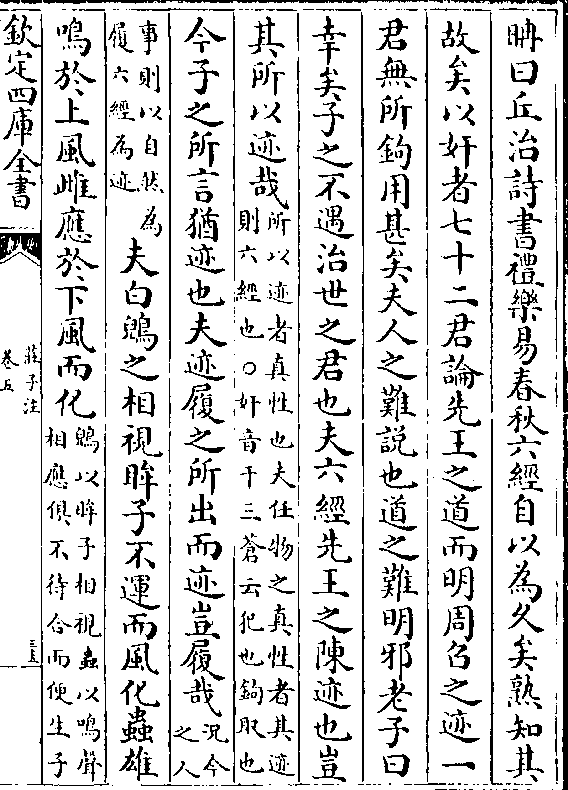 耼曰丘治詩書禮樂易春秋六經自以為久矣熟知其
故矣以奸者七十二君論先王之道而明周召之迹一
君無所鉤用甚矣夫人之難說也道之難明邪老子曰
幸矣子之不遇治世之君也夫六經先王之陳迹也豈
其所以迹哉所以迹者真性也夫任物之真性者其迹則六經也○奸音干三蒼云犯也鉤取也
今子之所言猶迹也夫迹履之所出而迹豈履哉況今之人
事則以自然為履六經為迹夫白鶂之相視眸子不運而風化蟲雄
鳴於上風雌應於下風而化鶂以眸子相視蟲以鳴聲相應俱不待合而便生子
欽定四庫全書
莊子注
卷五
三五